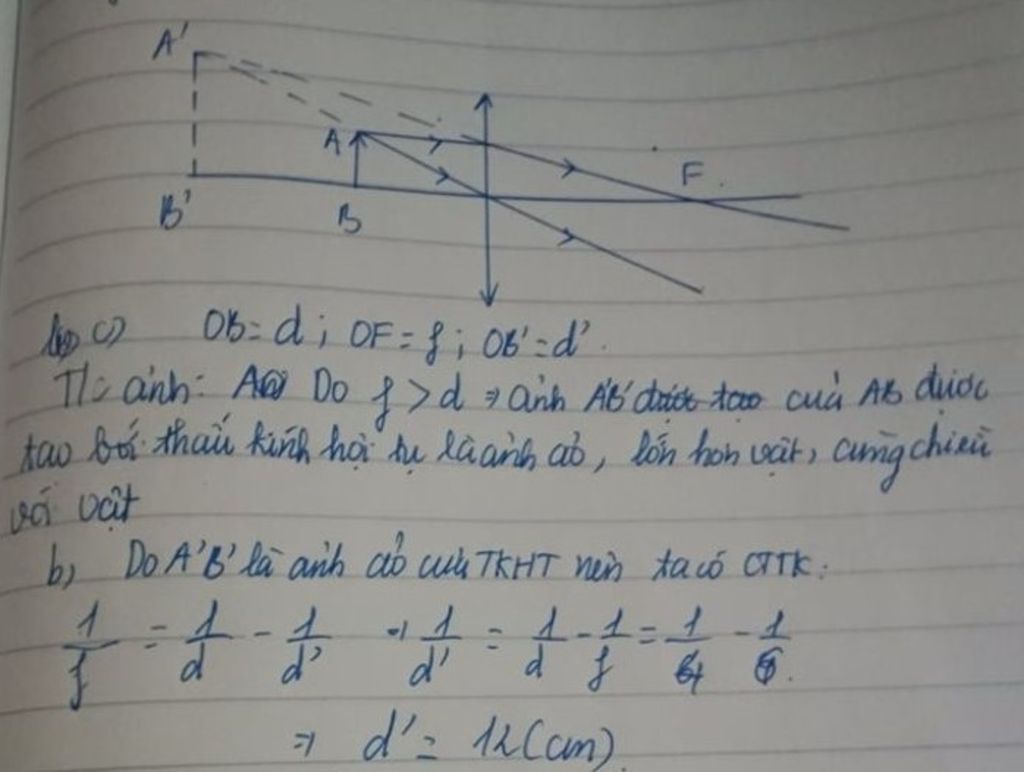 A'
A
F
B'
B
c) OB = d ; OF = f ; OB' = d'.
T/c ảnh: Do f > d ⇒ ảnh A'B' được tạo của AB được
tạo bởi thấu kính hội tụ là ảnh ảo, lớn hơn vật, cùng chiều
với vật
b, Do A'B' là ảnh ảo của TKHT nên ta có CTTK:
1/f = 1/d - 1/d' ⇒ 1/d' = 1/d - 1/f = 1/4 - 1/6.
⇒ d' = 12 (cm)